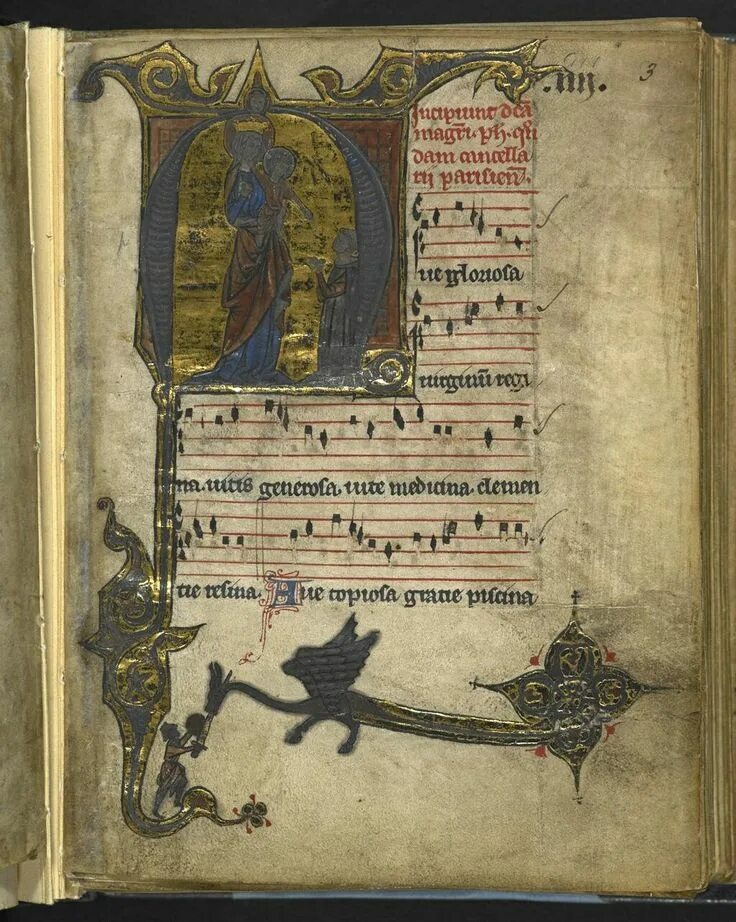 3
Incipiunt dc̄a
magr̄i. ph̄. q̄n
dam cancella
rij parisien̄.
ue gloriosa
uirginū regi
na. uitis generosa. uite medicina. clemen
tie resina. Aue copiosa gratie piscina